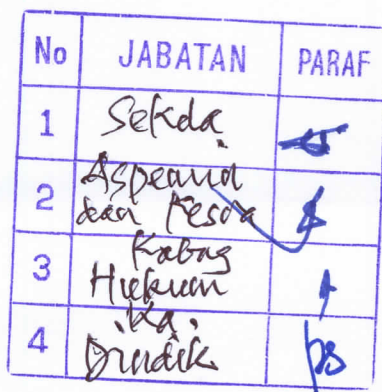 No JABATAN PARAF
1 Sekda
2 Aspemd
dan Kesra
3 Kabag
Hukum
4 Ka.
Dindik